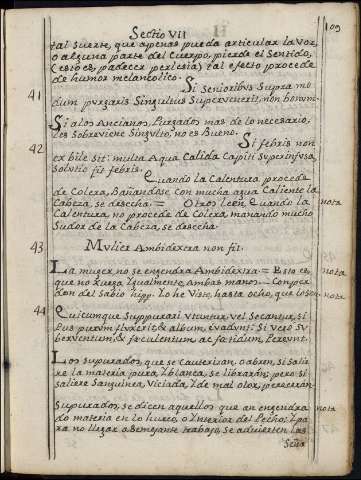 Sectio VII
109
tal Suerte, que apenas pueda articular la Voz,
o alguna parte del Cuerpo, pierde el Sentido,
(esto es, padecer perlesia) tal efecto procede
de humor melancolico.
41 Si Senioribus Supra mo
dum purgaris Singultus Supervenerit, non bonum.
Si alos Ancianos, Purgados mas de lo necesario,
les Sobreviene Singulto, no es Bueno.
42 Si febris non
ex bile sit: multa Aqua Calida Capiti Superinfusa,
Solutio fit febris.
Quando la Calentura procede
de Colera, Bañandose con mucha agua Caliente la
Cabeza, se desecha = Otros leen Quando la nota
Calentura no procede de Colera, manando mucho
Sudor de la Cabeza, se desecha.
43 Mulier Ambidextra non fit.
La muger no se engendra Ambidextra = Esto es, nota
que no Juega Igualmente, Ambas manos. Con per
don del Sabio hipp. Yo he Visto, hasta ocho, que lo son nota
44 Quicumque Suppurati Vruntur, vel Secantur, si
Pus purum fluxerit & album, evadunt: Si vero Su
bcruentum, & faeculentum ac fœtidum, Pereunt.
Los supurados, que se Cauterizan, o abren, si Salie
re la materia pura, Iblanca, se libraràn; pero si
Saliere Sanguinea, Viciada, I de mal olor, pereceràn.
Supurados, se dicen aquellos que an engendra nota
do materia en lo hueco, o Interior del Pecho; I pa
ra no llegar a Semejante trabajo, se advierten las
Seña